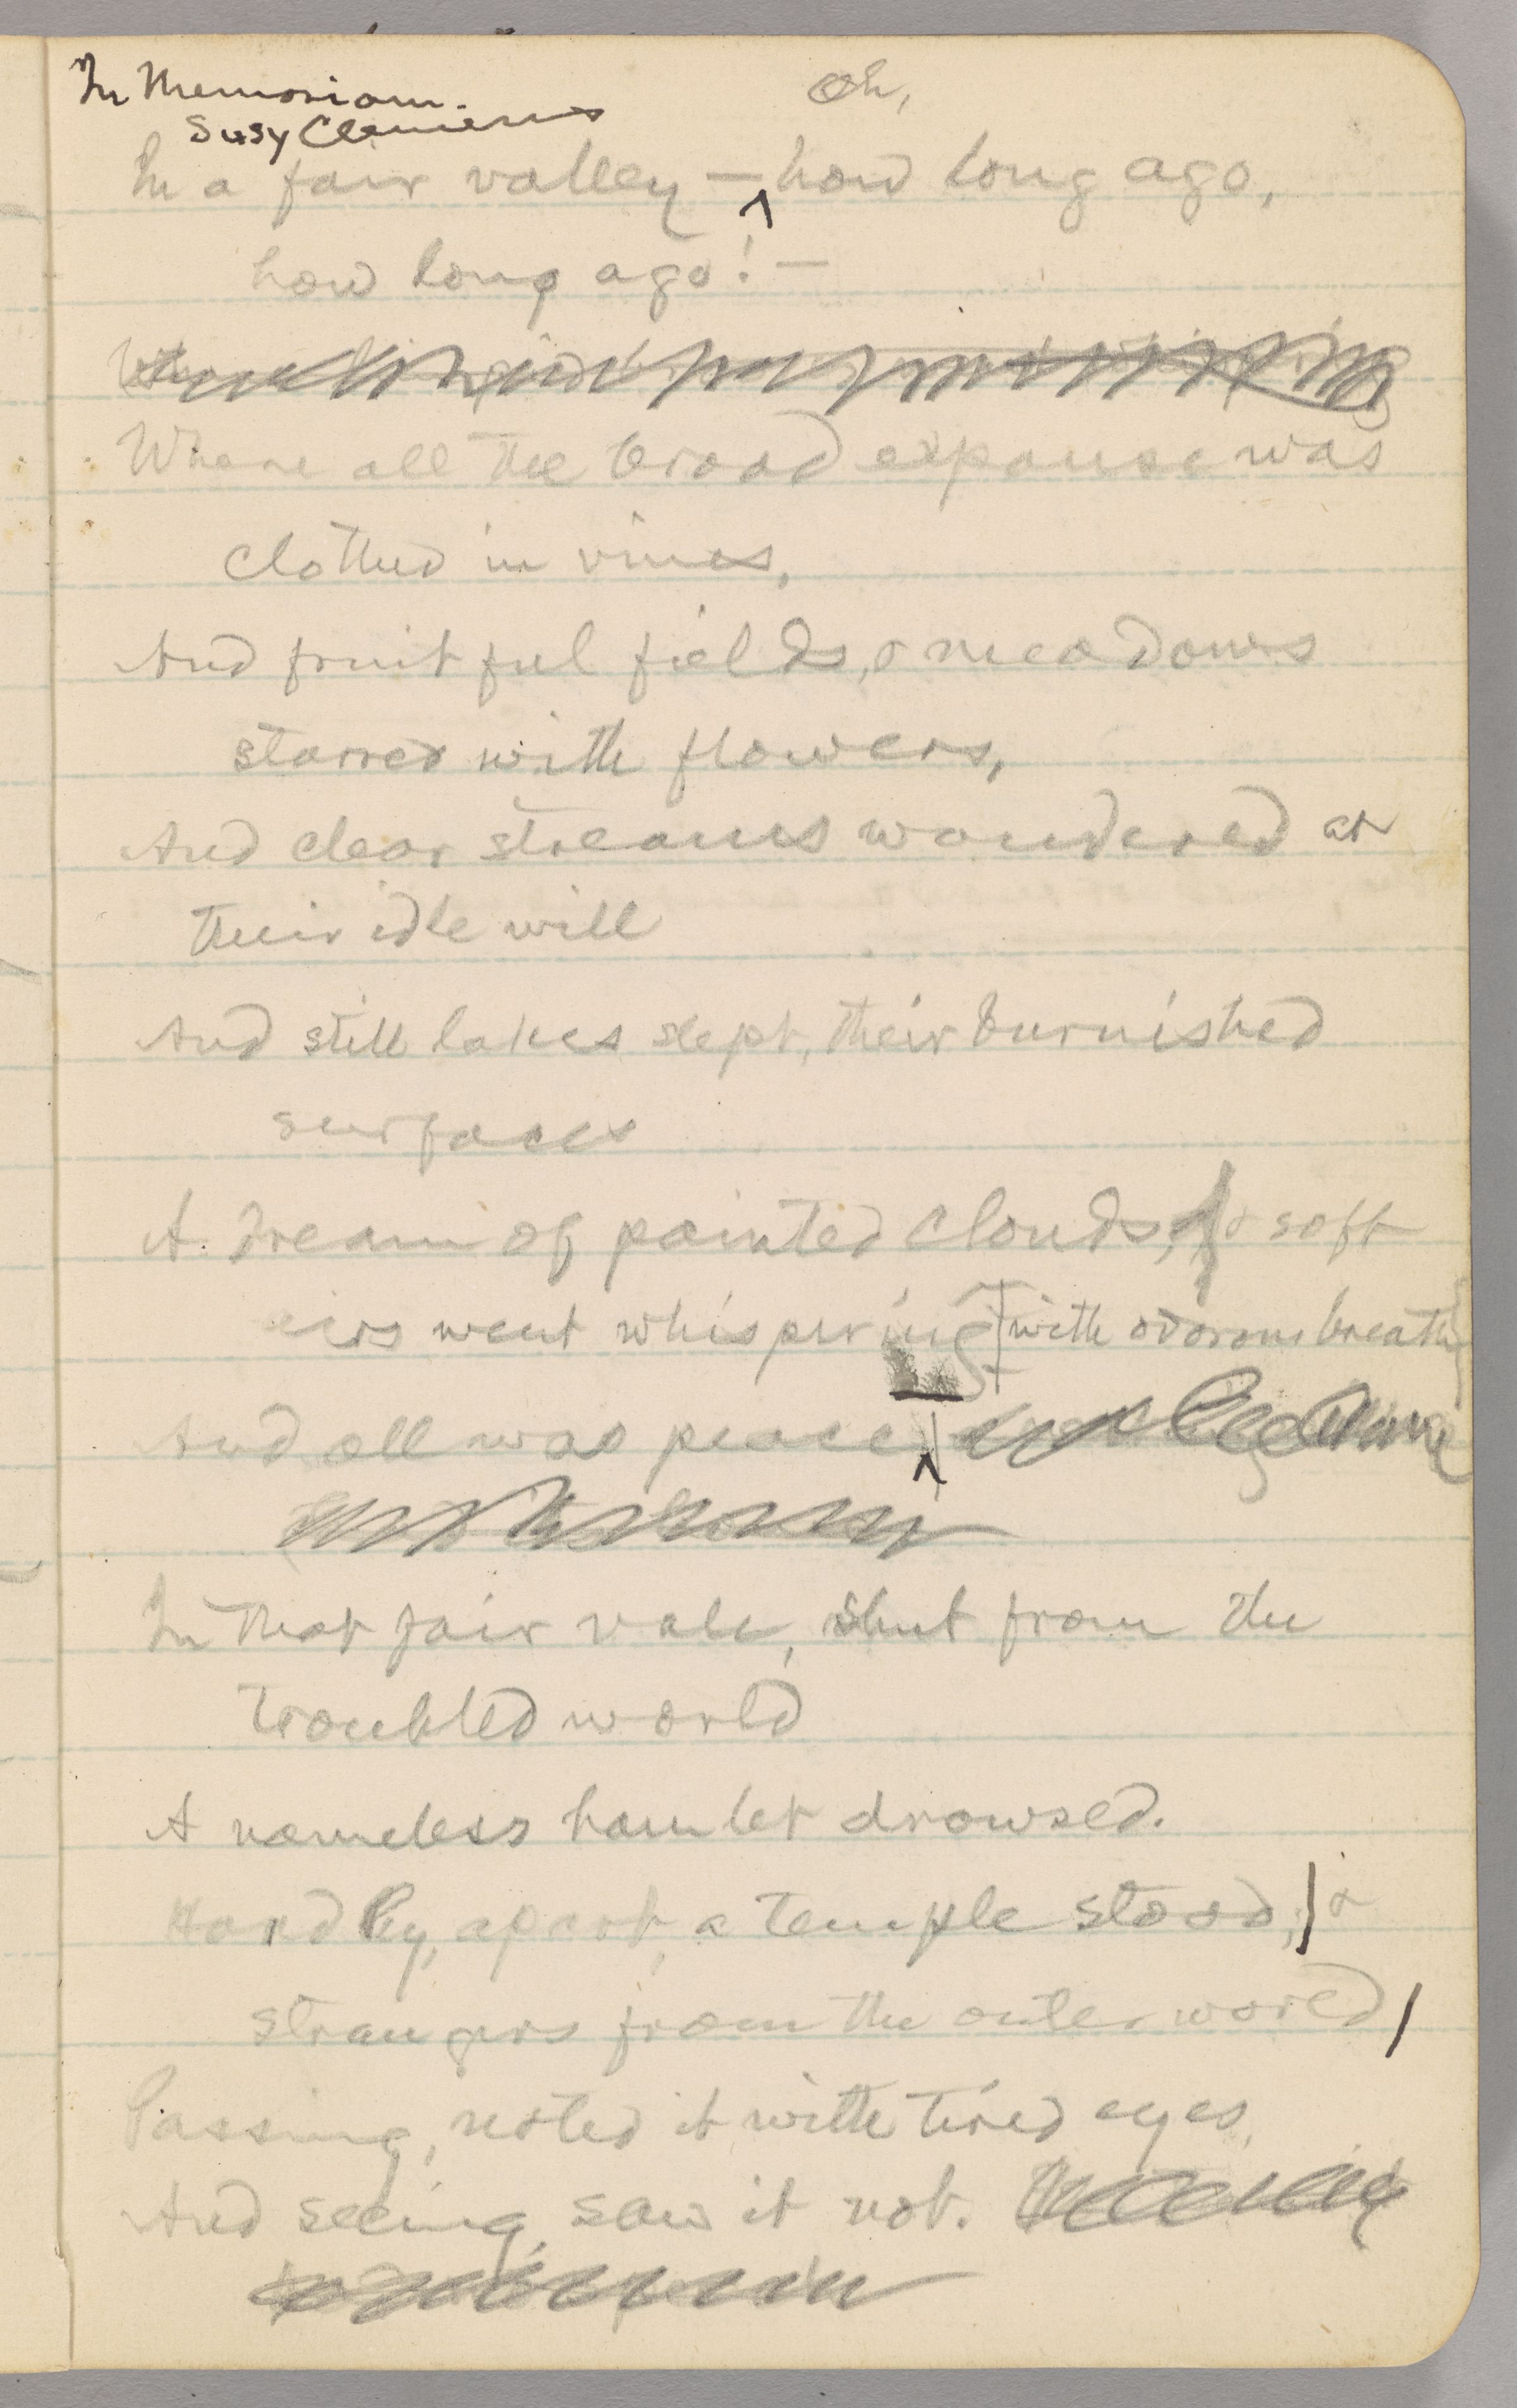 In Memoriam.
Susy Clemens
Oh,
In a fair valley — how long ago,
how long ago! —
Where all the broad expanse was
clothed in vines,
And fruitful fields, & meadows
starred with flowers,
And clear streams wandered at
their idle will
And still lakes slept, their burnished
surfaces
A dream of painted clouds, & soft
airs went whispering with odorous breath
And all was peace
In that fair vale, shut from the
troubled world
A nameless hamlet drowsed.
Hard by, apart, a temple stood; &
strangers from the outer world
Passing, noted it with tired eyes,
And seeing, saw it not.